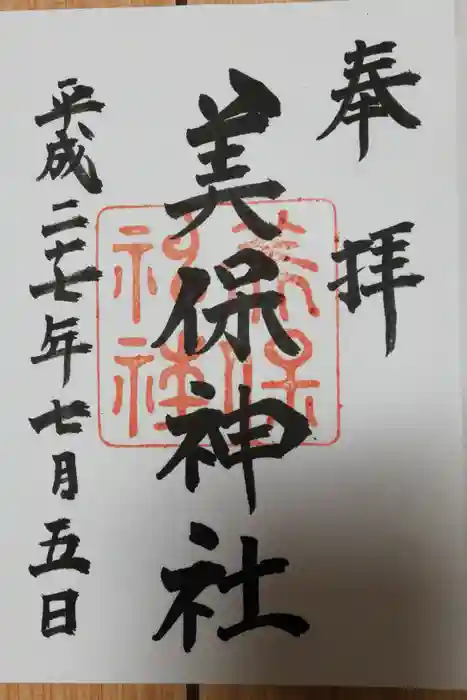 奉拝
美保神社
平成二十七年七月五日
美保
神社